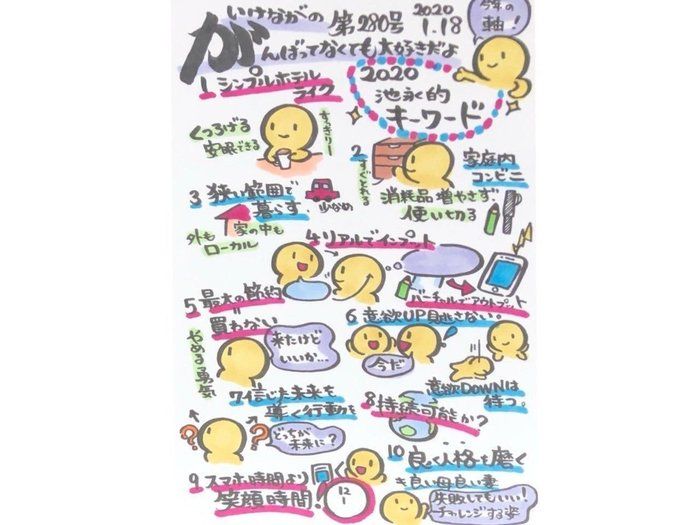 いけながの
第280号
2020
1.18
今年の
軸!
がんばってなくても大好きだよ
2020
池永的
キーワード
1 シンプルホテル
ライク
くつろげる
安眠できる
すっきりー
2
すぐとれる
家庭内
コンビニ
消耗品増やさず、
使い切る
3 狭い範囲で
暮らす、
少なめ
外も
家の中も
ローカル
4 リアルでインプット
バーチャルでアウトプット
5 最大の節約
=
買わない
やめる勇気
来たけど
いいか…
6 意欲UP見逃さない。
今だ
意欲DOWNは
待つ。
7 信じた未来を
導く行動を
? ?
どっちが
未来に?
8 持続可能か?
9 スマホ時間より
笑顔時間!
12
10 良く人格を磨く
良い母良い妻
失敗してもいい!
チャレンジする姿